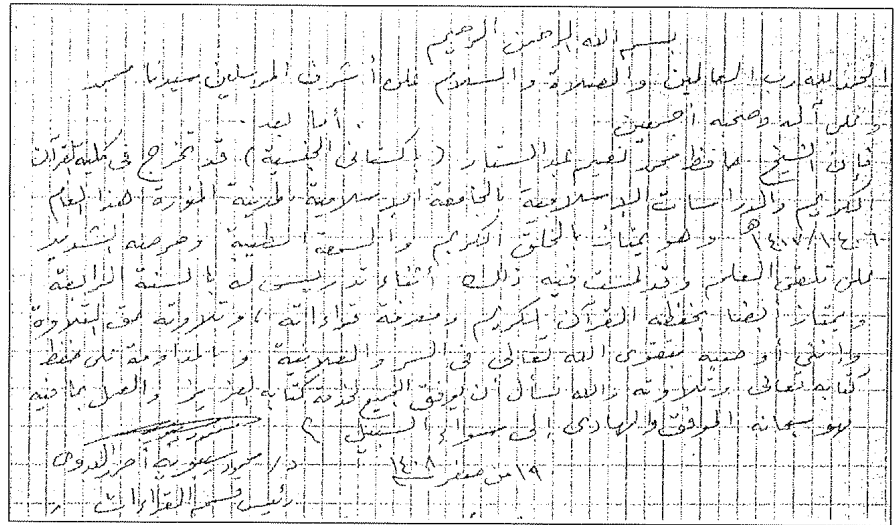 بسم الله الرحمن الرحيم
الحمد لله رب العالمين والصلاة والسلام على أشرف المرسلين سيدنا محمد
وعلى آله وصحبه أجمعين . أما بعد .
فإن الشيخ حافظ محمد نعيم عبد الستار ( باكستاني الجنسية ) قد تخرج في كلية القرآن
الكريم والدراسات الإسلامية بالجامعة الإسلامية بالمدينة المنورة هذا العام
١٤٠٦/١٤٠٧هـ وهو يمتاز بالخلق الكريم والسمعة الطيبة وحرصه الشديد
على تلقي العلم وقد لمست فيه ذلك أثناء تدريسي له بالسنة الرابعة
ويمتاز أيضا بحفظه القرآن الكريم ومعرفة قراءاته ، وتلاوته حق التلاوة
وإنني أوصيه بتقوى الله تعالى في السر والعلانية وبالمداومة على حفظ
كتابه تعالى وتلاوته والله نسأل أن يوفق الجميع لخدمة كتابه العزيز والعمل بما فيه
فهو سبحانه الموفق والهادي إلى سواء السبيل
١٩ من صفر ١٤٠٨
د/ محمود سيبويه أحمد البدوي
رئيس قسم القراءات